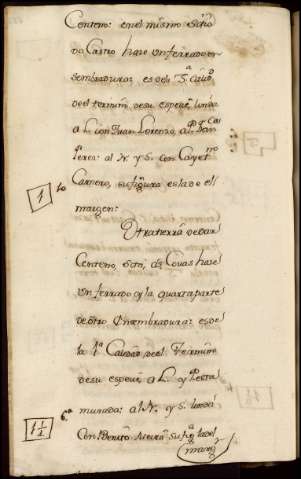 Centeno: en el mismo sitio
do Castro haze un ferrado en
sembradura: es de la 3ª Calid.
de el termin. de su especie, linda
a L. con Juan Lorenzo, al P. con
Perez: al N. y S. con Cayet.no
Carnero, su figura es la de el
margen:
Otra tierra de dar
Centeno sitio, das Covas haze
un ferrado y la quarta parte
de otro en sembradura: es de
la 1ª Calidad de el termin.
de su especie a L. y P. esta
murada: al N. y S. linda
Con Benito su fig.ª la del
marg.
1
1 1/2